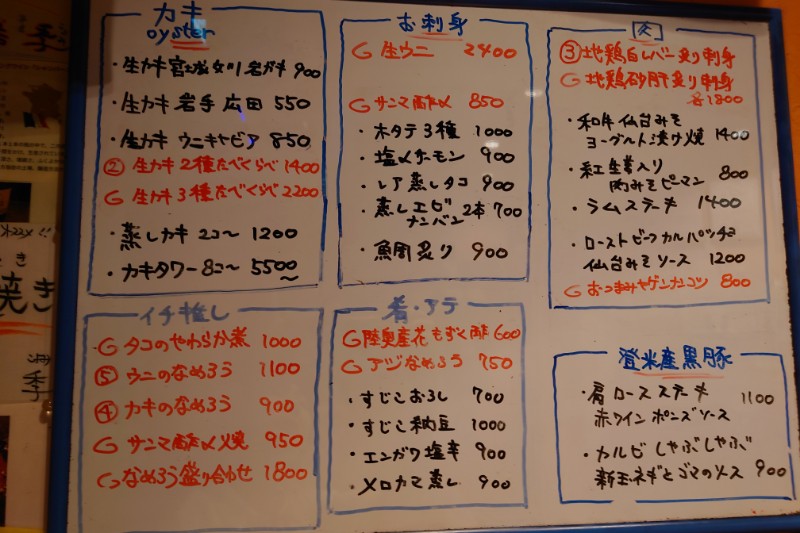 カキ
oyster
・生カキ 宮城女川 岩ガキ 900
・生カキ 岩手 広田 550
・生カキ ウニキャビア 850
② 生カキ 2種たべくらべ 1400
G 生カキ 3種たべくらべ 2200
・蒸しカキ 2コ〜 1200
・カキタワー 8コ〜 5500〜
お刺身
G 生ウニ 2400
G サンマ酢〆 850
・ホタテ3種 1000
・塩〆サーモン 900
・レア蒸しタコ 900
・蒸しエビ 2本 700
ナンバン
・真鯛炙り 900
③ 地鶏白レバー炙り刺身
G 地鶏砂肝炙り刺身
各1800
・和牛仙台みそ
ヨーグルト漬け焼 1400
・紅生姜入り
肉みそピーマン 800
・ラムステーキ 1400
・ローストビーフカルパッチョ
仙台みそソース 1200
G おつまみヤゲンナンコツ 800
イチ推し
G タコのやわらか煮 1000
⑤ ウニのなめろう 1100
④ カキのなめろう 900
G サンマ酢〆焼 950
G なめろう盛り合わせ 1800
肴・アテ
G 陸奥産花もずく酢 600
G アジなめろう 750
・すじこおろし 700
・すじこ納豆 1000
・エンガワ塩辛 900
・メロカマ蒸し 900
登米産黒豚
・肩ロースステーキ 1100
赤ワインポンズソース
・カルビしゃぶしゃぶ
新玉ネギとゴマのソース 900
焼き
季